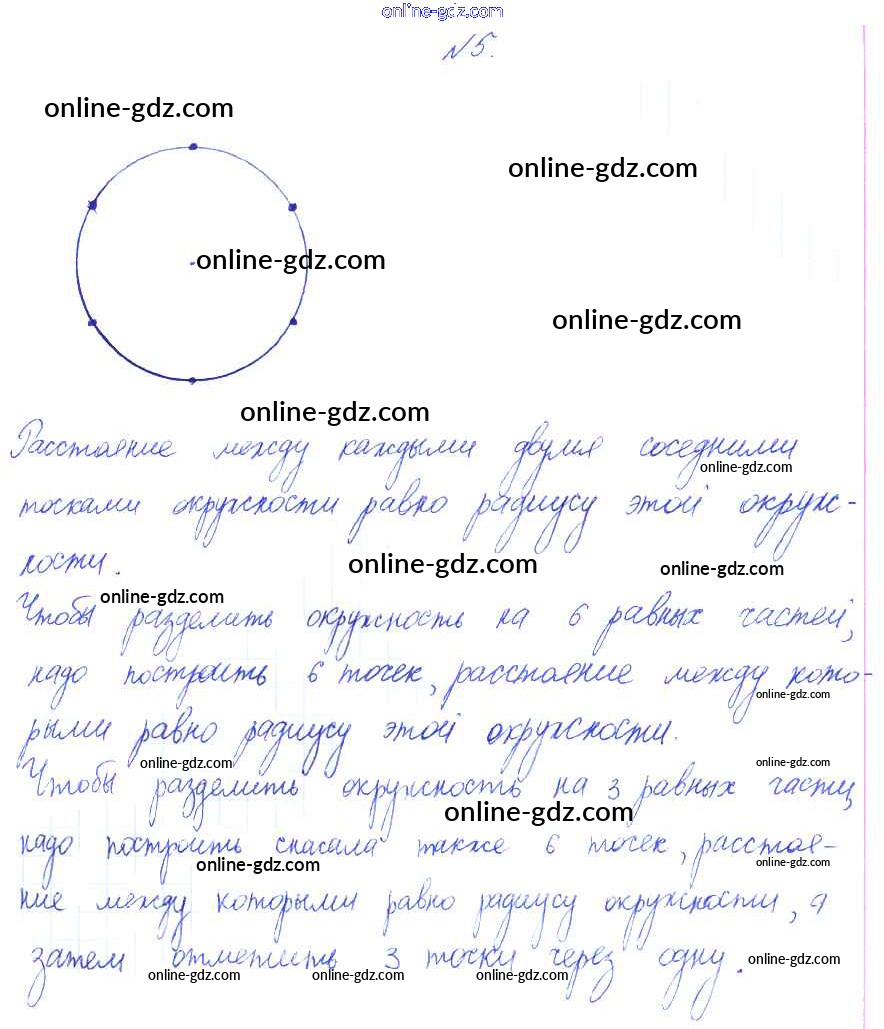 online-gdz.com
№5.
online-gdz.com
online-gdz.com
online-gdz.com
online-gdz.com
online-gdz.com
Расстояние между каждыми двумя соседними
online-gdz.com
точками окружности равно радиусу этой окруж-
ности.
online-gdz.com
online-gdz.com
online-gdz.com
Чтобы разделить окружность на 6 равных частей,
надо построить 6 точек, расстояние между кото-
online-gdz.com
рыми равно радиусу этой окружности.
online-gdz.com
online-gdz.com
Чтобы разделить окружность на 3 равных части,
online-gdz.com
надо построить сначала также 6 точек, расстоя-
online-gdz.com
online-gdz.com
ние между которыми равно радиусу окружности, а
затем отметить 3 точки через одну.
online-gdz.com
online-gdz.com
online-gdz.com
online-gdz.com